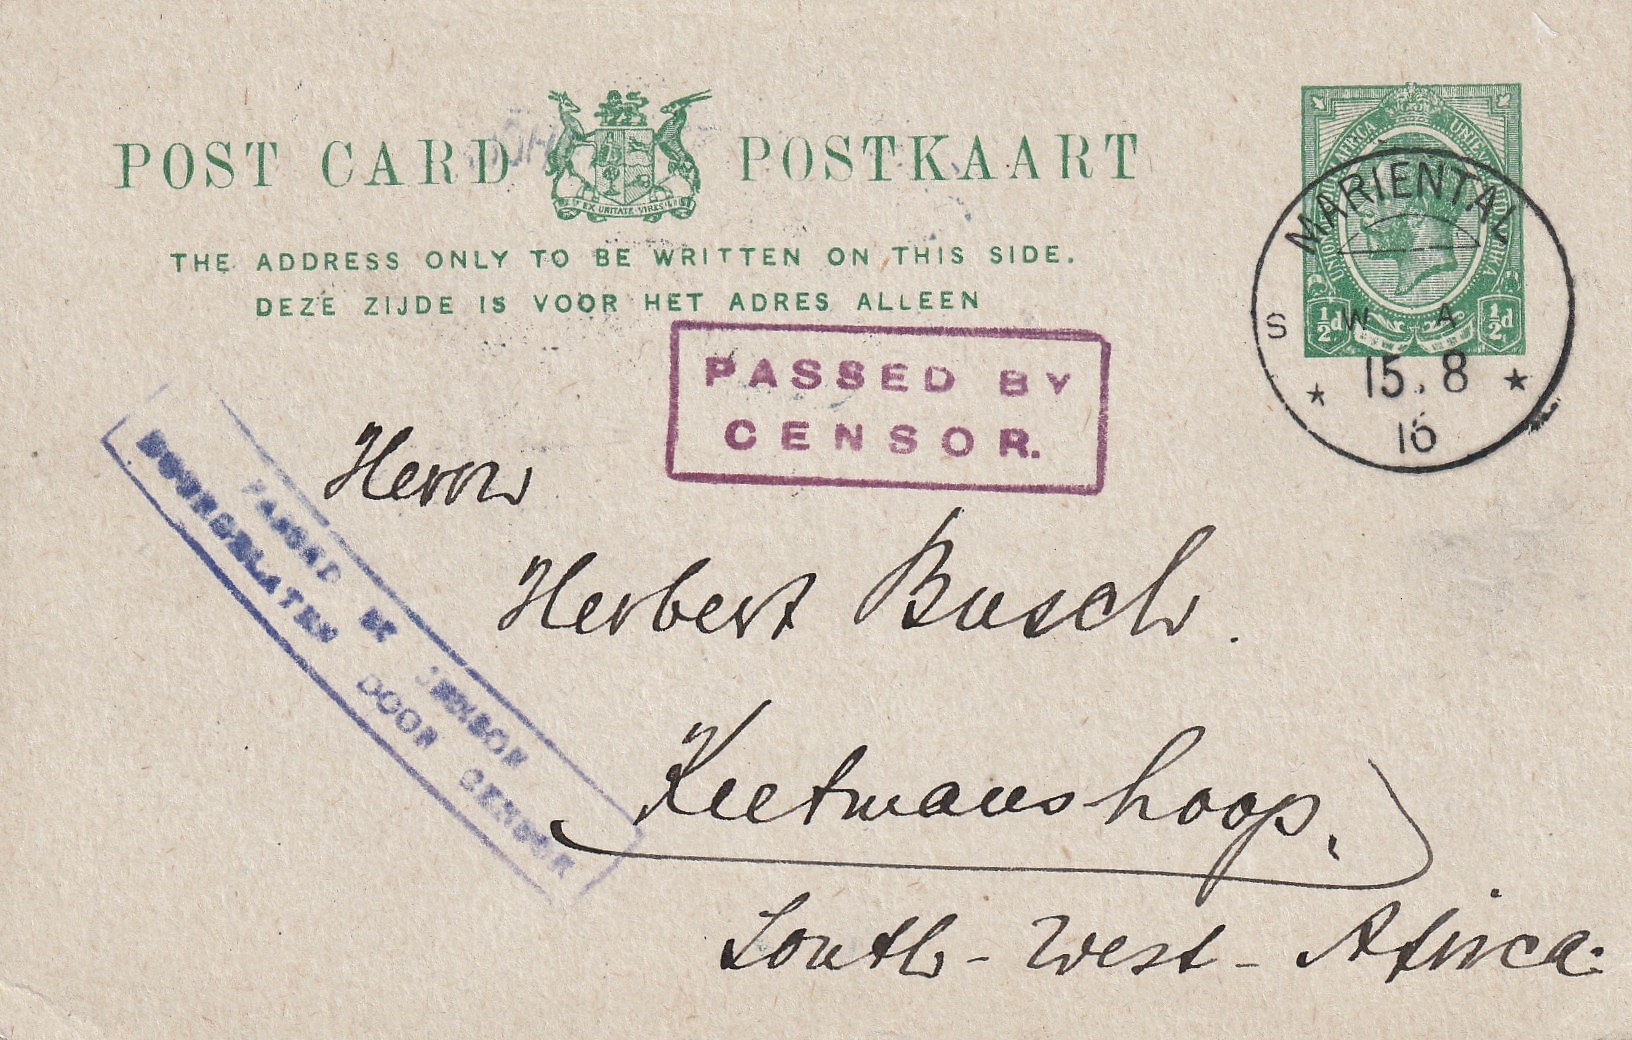 POST CARD POSTKAART
EX UNITATE VIRES
THE ADDRESS ONLY TO BE WRITTEN ON THIS SIDE.
DEZE ZIJDE IS VOOR HET ADRES ALLEEN
½d ½d
MARIENTAL
S W A
15.8
16
PASSED BY
CENSOR.
PASSED BY CENSOR
DOORGELATEN DOOR CENSOR
Herrn
Herbert Busch.
Keetmanshoop,
South-West-Africa.